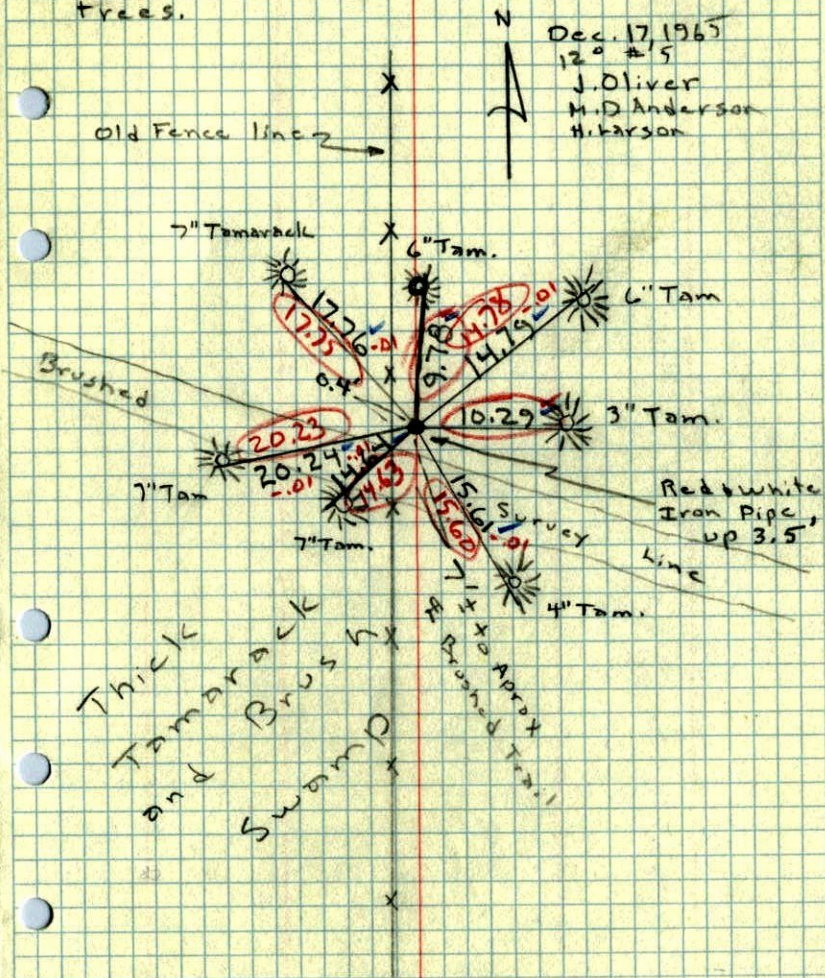 trees.
N
Dec. 17, 1965
12° #5
J. Oliver
M.D Anderson
H. Larson
Old Fence line
7" Tamarack
6" Tam.
6" Tam
17.76 -.01
17.75
9.78
14.78 -.01
14.79
0.4'
Brushed
10.29
3" Tam.
20.23
20.24
-.01
14.63
7" Tam
7" Tam.
15.61 -.01
15.60
Survey
Line
Red & white
Iron Pipe,
up 3.5'
4" Tam.
Thick
Tamarack
and Brush
Swamp
Aprox
Brushed Trail